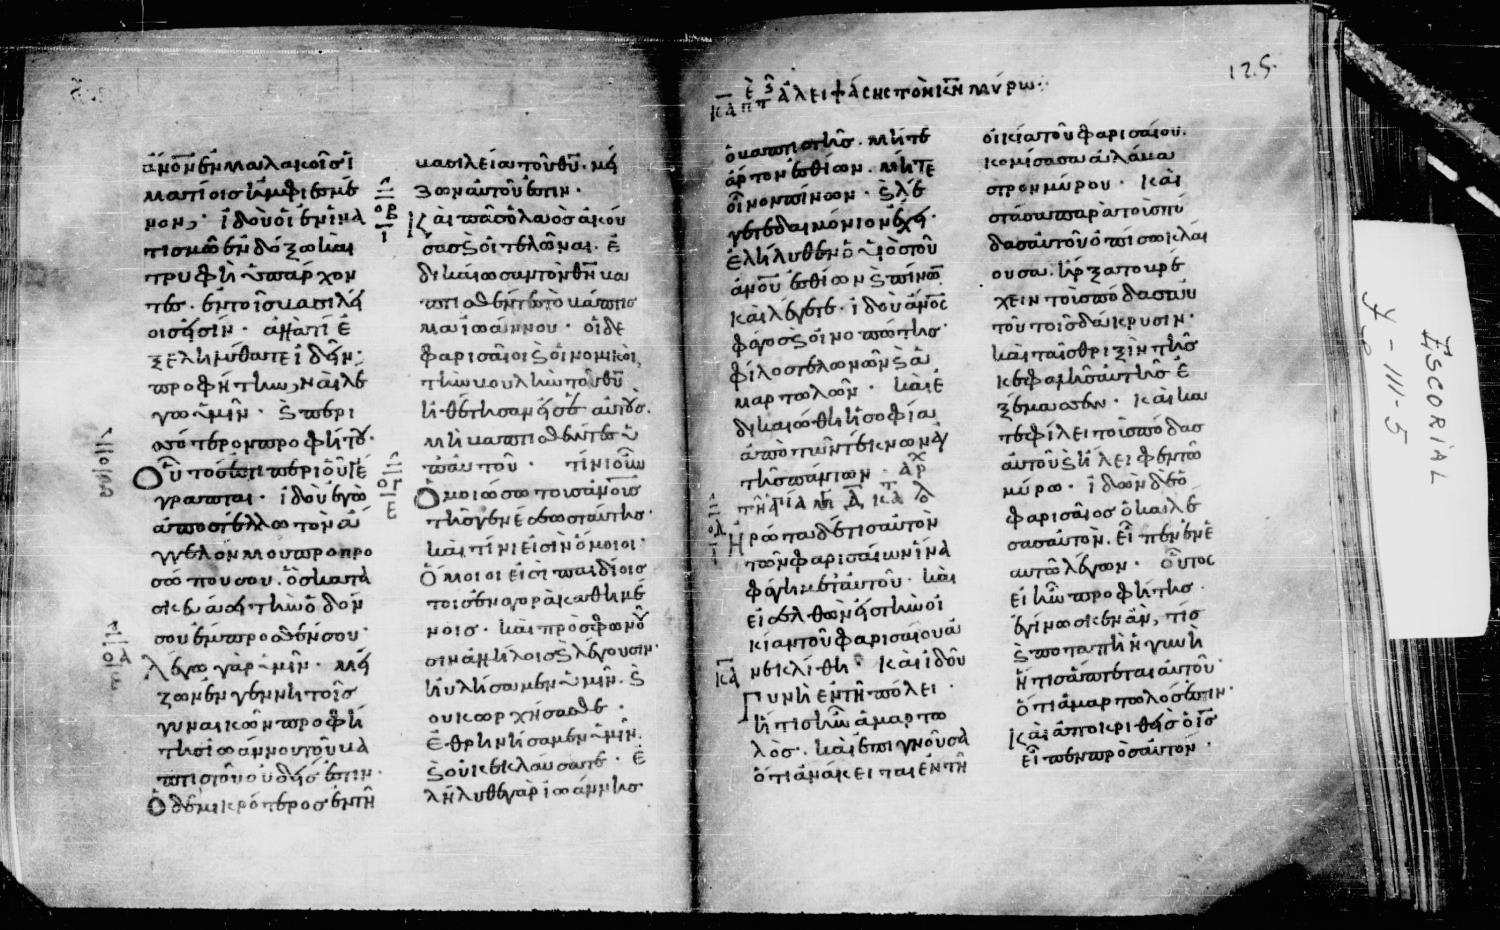 ἄνον ἐν μαλακοῖς ἱ
ματίοις ἠμφιεσμέ
νον; ἰδοὺ οἱ ἐν ἱμα
τισμῶ ἐνδόξω καὶ
τρυφῆ ὑπάρχον
τες. ἐν τοῖς βασιλεί
οις εἰσίν. ἀλλὰ τί ἐ
ξεληλύθατε ἰδεῖν;
προφήτην; ναὶ λέ
γω ὑμῖν. καὶ περι
σσότερον προφήτου.
Οὗτός ἐστι περὶ οὗ γέ
γραπται. ἰδοὺ ἐγὼ
ἀποστέλλω τὸν ἄ
γγελόν μου πρὸ προ
σώπου σου. ὃς κατα
σκευάσει τὴν ὁδόν
σου ἔμπροσθέν σου.
λέγω γὰρ ὑμῖν. μεί
ζων ἐν γεννητοῖς
γυναικῶν προφή
της ἰωάννου τοῦ βα
πτιστοῦ οὐδείς ἐστιν.
Ὁ δὲ μικρότερος ἐν τῆ
βασιλεία τοῦ θῦ. μεί
ζων αὐτοῦ ἐστιν.
Καὶ πᾶς ὁ λαὸς ἀκού
σας καὶ οἱ τελῶναι. ἐ
δικαίωσαν τὸν θν βα
πτισθέντες τὸ βάπτισ
μα ἰωάννου. οἱ δὲ
φαρισαῖοι καὶ οἱ νομικοὶ,
τὴν βουλὴν τοῦ θῦ
ἠθέτησαν εἰς ἑαυτούς.
μὴ βαπτισθέντες ὑ
π' αὐτοῦ. τίνι οὖν
Ὁμοιώσω τοὺς ἀνους
τῆς γενεᾶς ταύτης.
καὶ τίνι εἰσὶν ὅμοιοι.
Ὅμοιοι εἰσὶ παιδίοις
τοῖς ἐν ἀγορᾶ καθημέ
νοις. καὶ προσφωνοῦ
σιν ἀλλήλοις καὶ λέγουσιν.
ηὐλήσαμεν ὑμῖν. καὶ
οὐκ ὠρχήσασθε.
ἐθρηνήσαμεν ὑμῖν.
καὶ οὐκ ἐκλαύσατε. ἐ
λήλυθε γὰρ ἰωάννης
125.
ὁ βαπτιστὴς. μήτε
ἄρτον ἐσθίων. μήτε
οἶνον πίνων. καὶ λέ
γετε δαιμόνιον ἔχει.
ἐλήλυθεν ὁ υἱὸς τοῦ
ἀνου ἐσθίων καὶ πίνων.
καὶ λέγετε. ἰδοὺ ἄνος
φάγος καὶ οἰνοπότης.
φίλος τελωνῶν καὶ ἁ
μαρτωλῶν. καὶ ἐ
δικαιώθη ἡ σοφία
ἀπὸ τῶν τέκνων αὐ
τῆς πάντων.
Ἠρώτα δέ τις αὐτὸν
τῶν φαρισαίων ἵνα
φάγη μετ' αὐτοῦ. καὶ
εἰσελθὼν εἰς τὴν οἰ
κίαν τοῦ φαρισαίου ἀ
νεκλίθη. Καὶ ἰδοὺ
Γυνὴ ἐν τῆ πόλει
ἥτις ἦν ἁμαρτω
λὸς. καὶ ἐπιγνοῦσα
ὅτι ἀνάκειται ἐν τῆ
οἰκία τοῦ φαρισαίου.
κομίσασα ἀλάβα
στρον μύρου. Καὶ
στᾶσα παρὰ τοὺς πό
δας αὐτοῦ ὀπίσω κλαί
ουσα. ἤρξατο βρέ
χειν τοὺς πόδας αὐ
τοῦ τοῖς δάκρυσιν.
καὶ ταῖς θριξὶν τῆς
κεφαλῆς αὐτῆς ἐ
ξέμασσεν. Καὶ κα
τεφίλει τοὺς πόδας
αὐτοῦ καὶ ἤλειφεν τῶ
μύρω. ἰδὼν δὲ ὁ
φαρισαῖος ὁ καλέ
σας αὐτὸν. εἶπεν ἐν ἑ
αυτῶ λέγων. οὗτος
εἰ ἦν προφήτης.
ἐγίνωσκεν ἂν, τίς
καὶ ποταπὴ ἡ γυνὴ
ἥτις ἅπτεται αὐτοῦ.
ὅτι ἁμαρτωλός ἐστιν.
Καὶ ἀποκριθεὶς ὁ ις
εἶπεν πρὸς αὐτόν.
ESCORIAL
Ψ-III-5